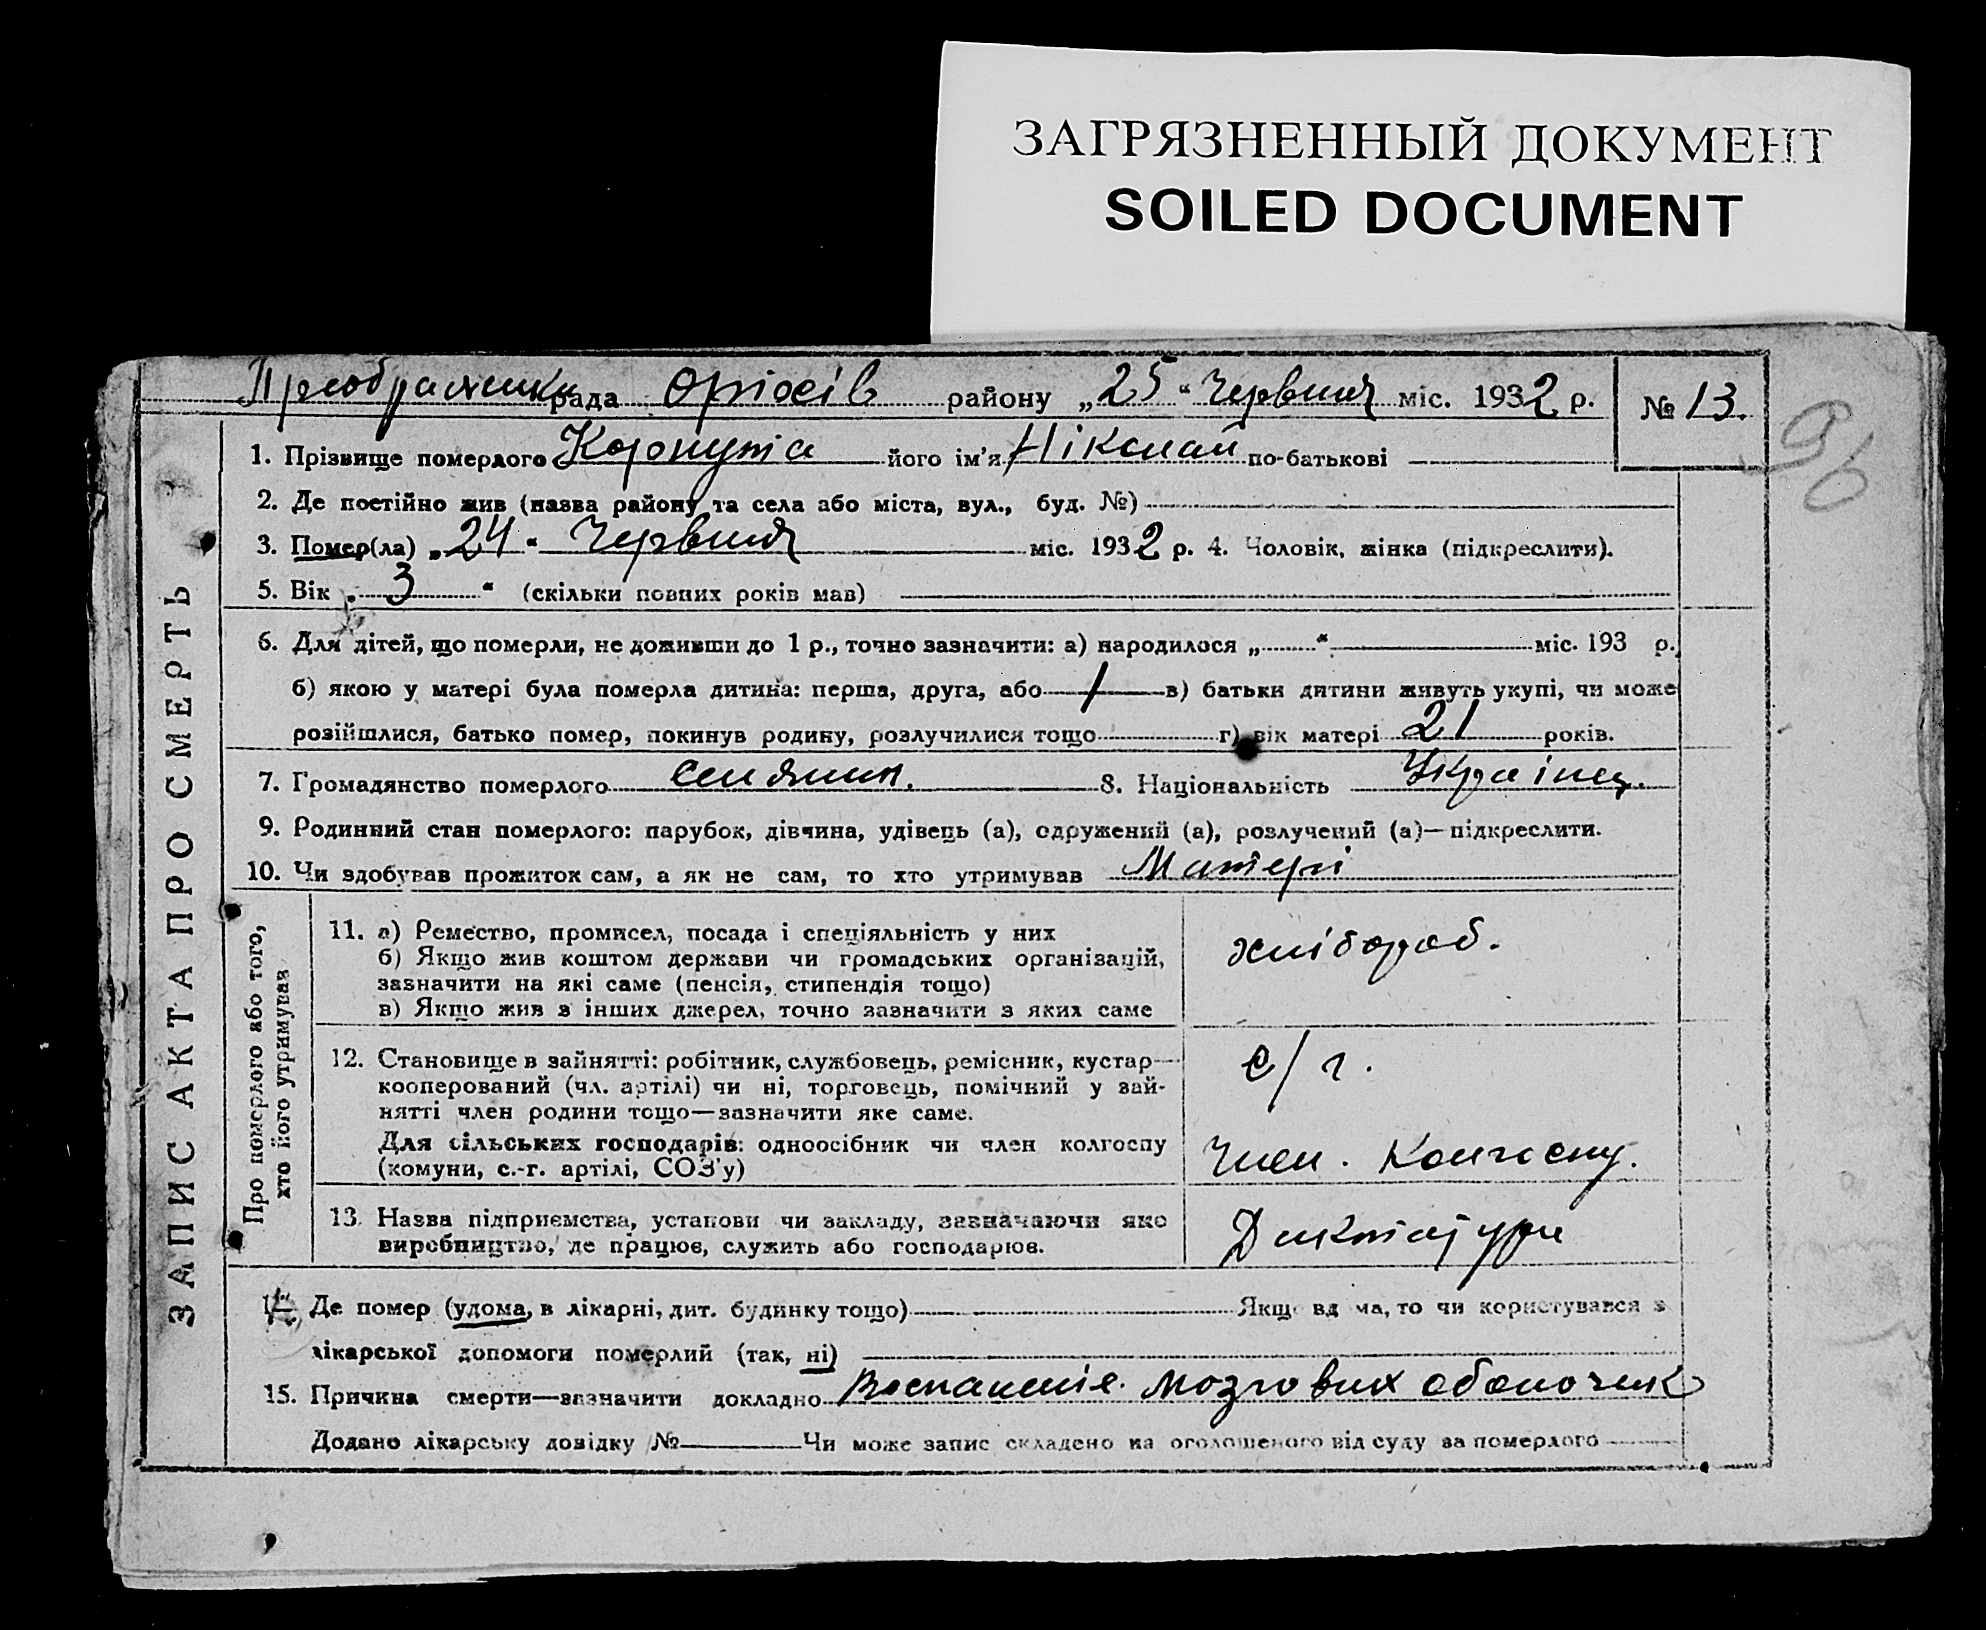 ЗАГРЯЗНЕННЫЙ ДОКУМЕНТ
SOILED DOCUMENT
Преображенка рада Оріхів району „25“ Червння міс. 1932 р. № 13.
96
ЗАПИС АКТА ПРО СМЕРТЬ
1. Прізвище померлого Коропута його ім'я Ніколай по-батькові
2. Де постійно жив (назва району та села або міста, вул., буд. №)
3. Помер(ла) „24“ Червння міс. 1932 р. 4. Чоловік, жінка (підкреслити).
5. Вік „3“ (скільки повних років мав)
6. Для дітей, що померли, не доживши до 1 р., точно зазначити: а) народилося „ “ міс. 193 р.
б) якою у матері була померла дитина: перша, друга, або / в) батьки дитини живуть укупі, чи може
розійшлися, батько помер, покинув родину, розлучилися тощо г) вік матері 21 років.
7. Громадянство померлого селянин. 8. Національність Українец.
9. Родинний стан померлого: парубок, дівчина, удівець (а), одружений (а), розлучений (а)—підкреслити.
10. Чи здобував прожиток сам, а як не сам, то хто утримував Матері
Про померлого або того,
хто його утримував
11. а) Ремество, промисел, посада і спеціяльність у них
б) Якщо жив коштом держави чи громадських організацій,
зазначити на які саме (пенсія, стипендія тощо)
в) Якщо жив з інших джерел, точно зазначити з яких саме
хлібороб.
12. Становище в зайнятті: робітник, службовець, ремісник, кустар—
кооперований (чл. артілі) чи ні, торговець, помічний у зай-
нятті член родини тощо—зазначити яке саме.
с/г.
Для сільських господарів: одноосібник чи член колгоспу
(комуни, с.-г. артілі, СОЗ'у)
Член. Колгоспу.
13. Назва підприємства, установи чи закладу, зазначаючи яке
виробництво, де працює, служить або господарює.
Диктатура
14. Де помер (удома, в лікарні, дит. будинку тощо) Якщо вдома, то чи користувався з
лікарської допомоги померлий (так, ні)
15. Причина смерти—зазначити докладно Воспаленіе. мозгових оболочек
Додано лікарську довідку № Чи може запис складено на оголошеного від суду за померлого